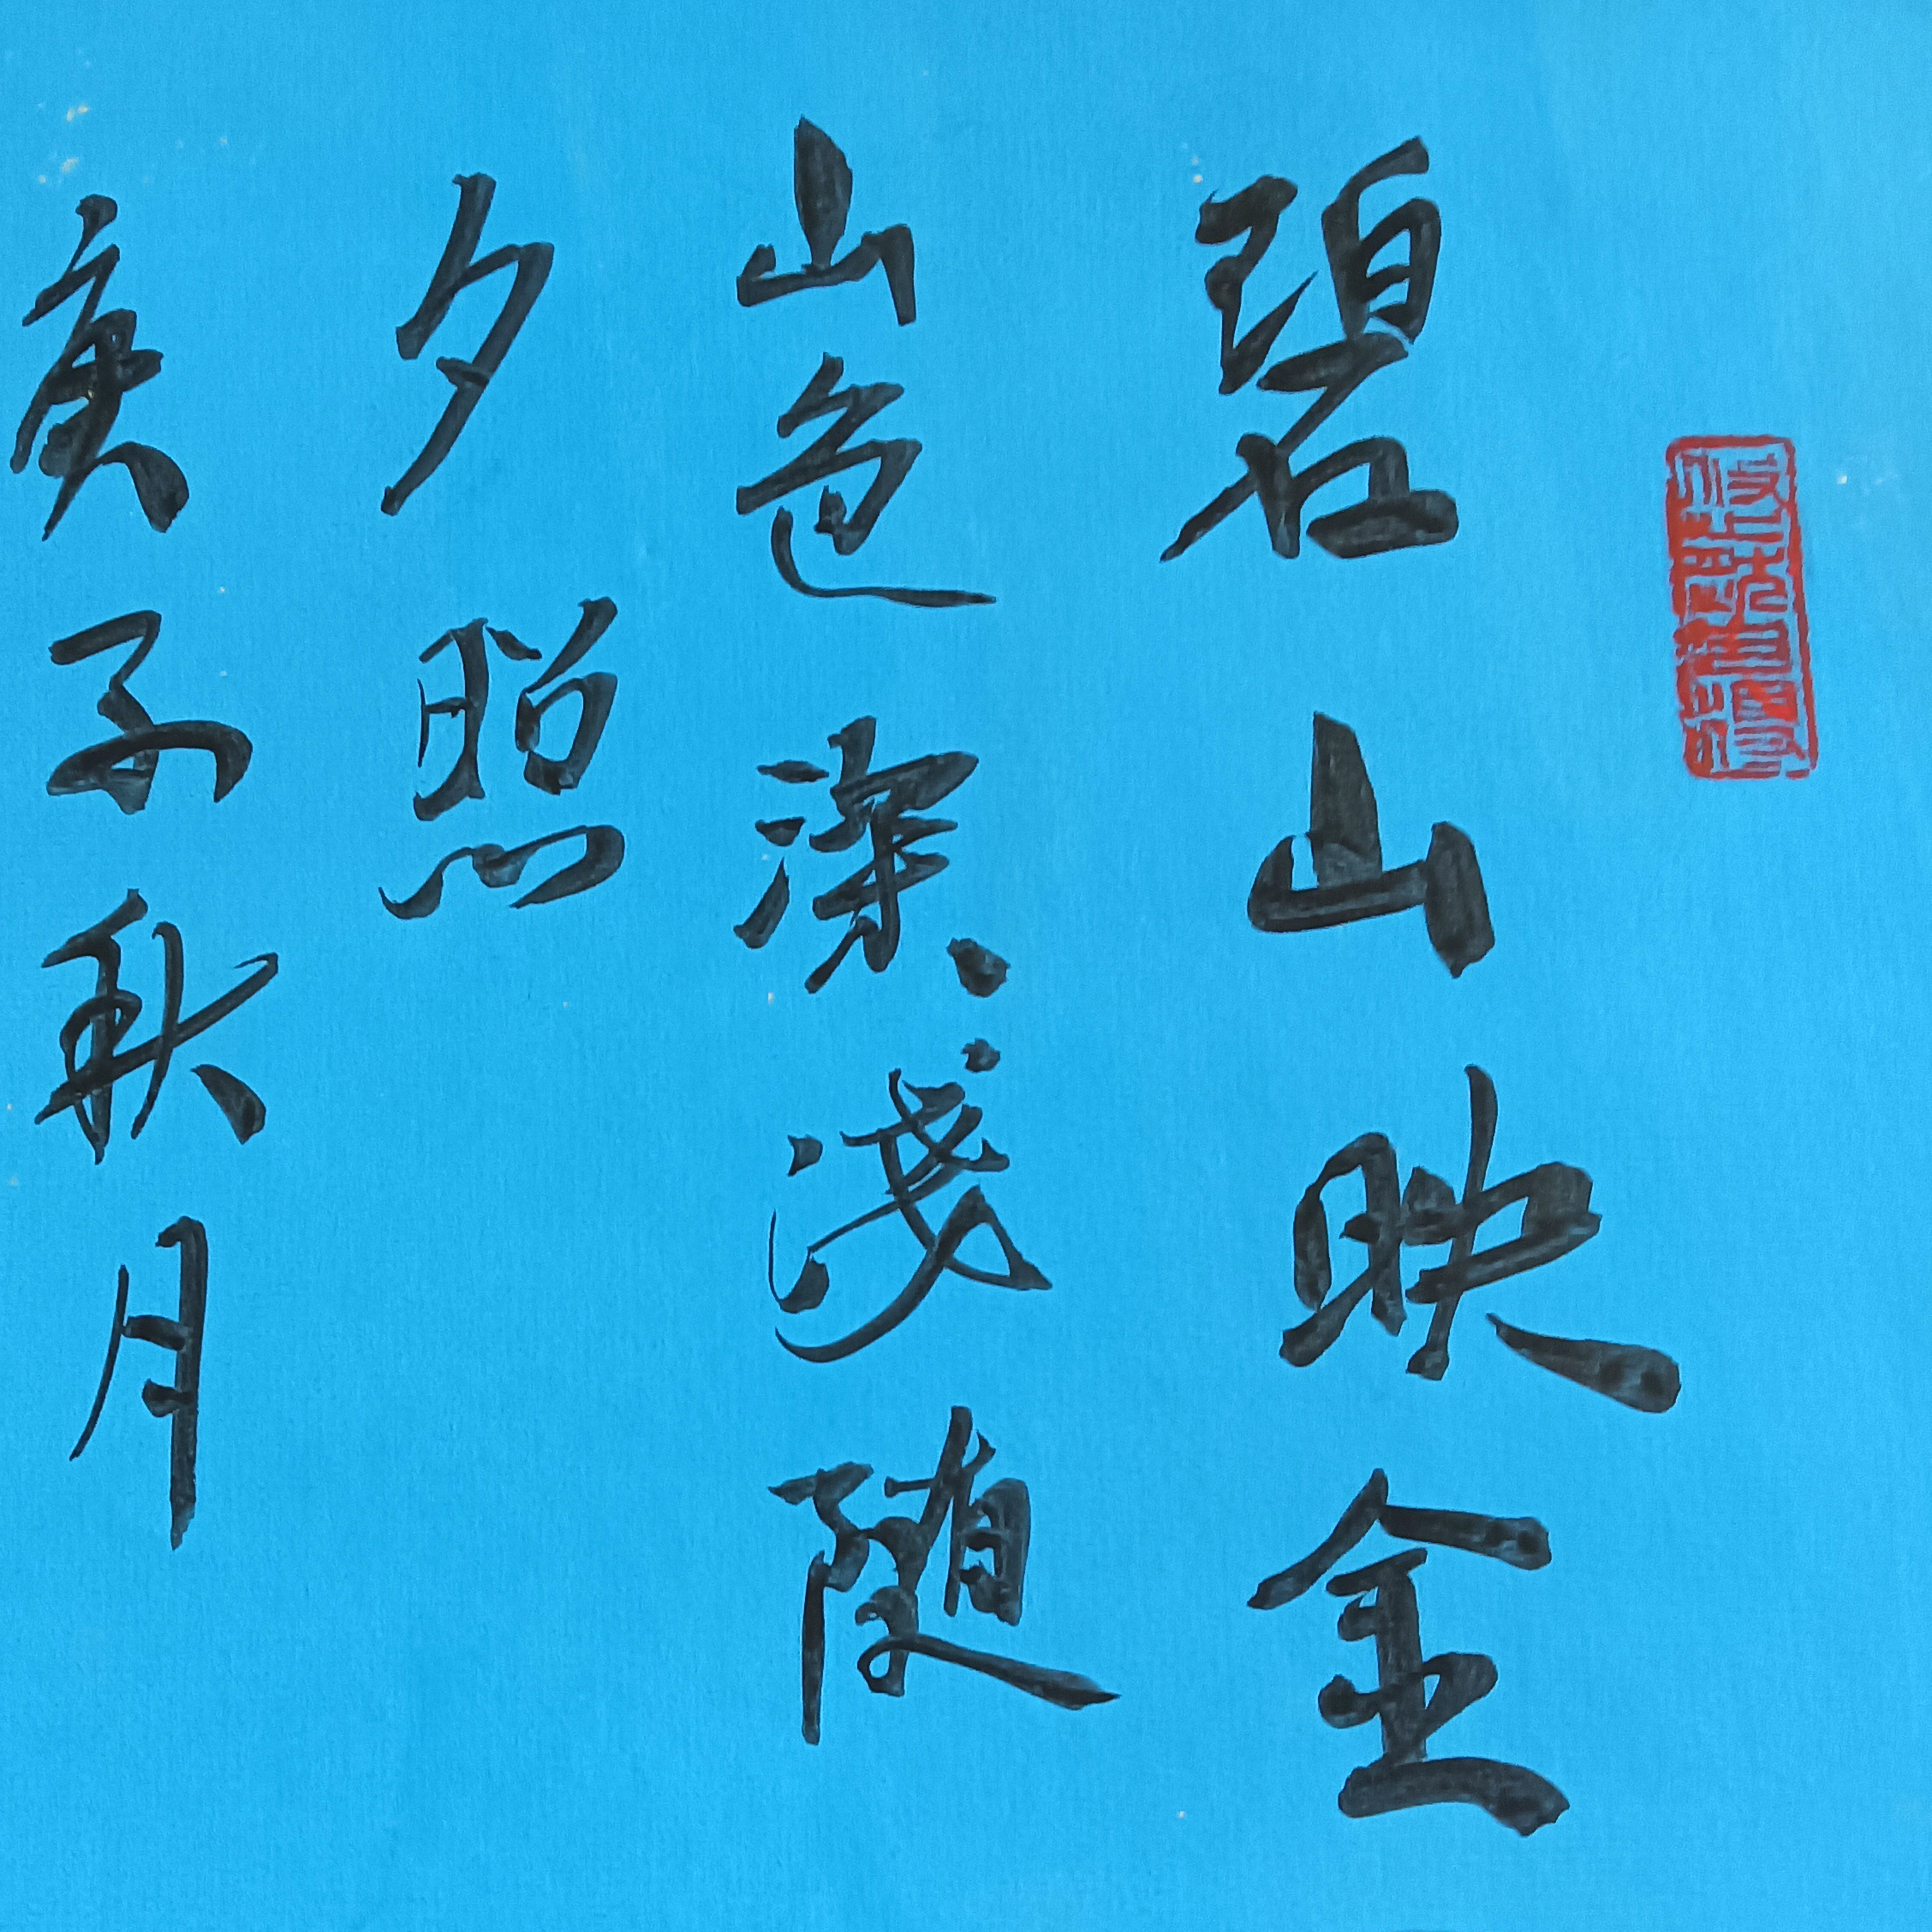 碧山映金
山色深淺随
夕照
庚子秋月